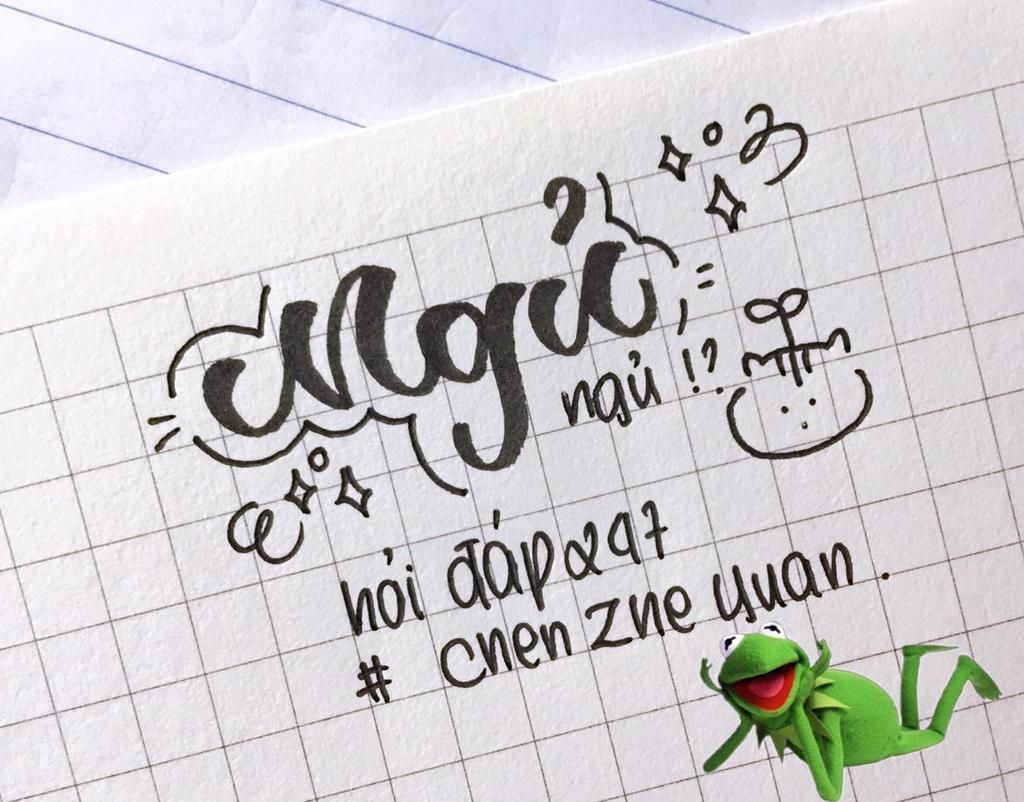 Ngủ
ngủ !?
hỏi đáp 247
# chen zhe yuan .